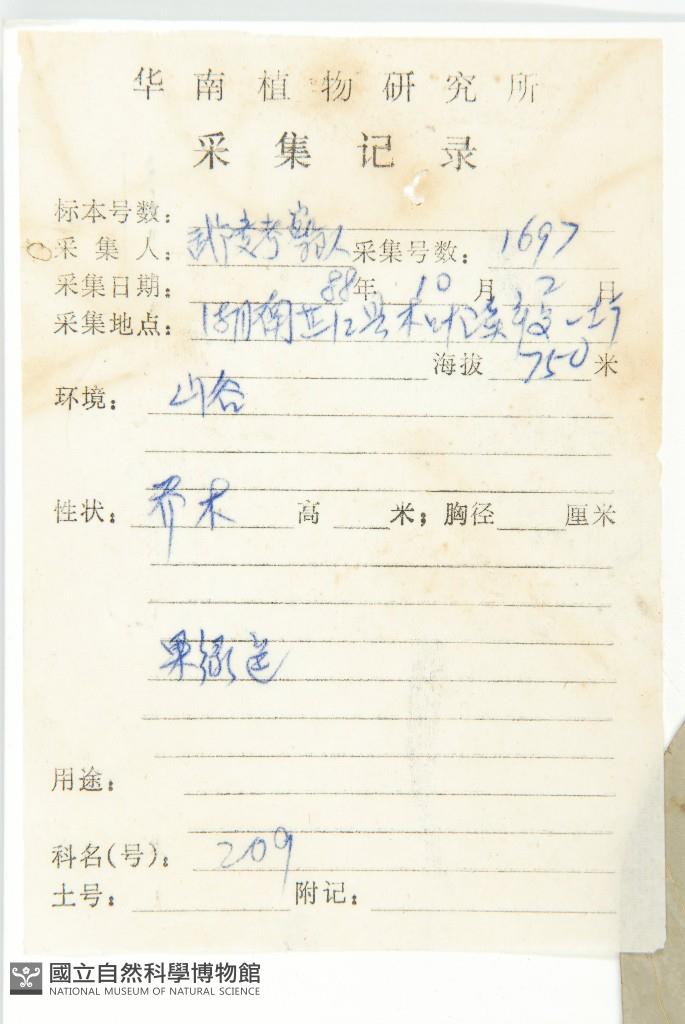 华南植物研究所
采集记录
标本号数：
采集人：武陵考察队 采集号数：1697
采集日期：88年10月2日
采集地点：湖南芷江县木叶溪
海拔 750 米
环境：山谷
性状：乔木 高 米；胸径 厘米
果绿色
用途：
科名(号)：209
土号： 附记：
國立自然科學博物館
NATIONAL MUSEUM OF NATURAL SCIENCE